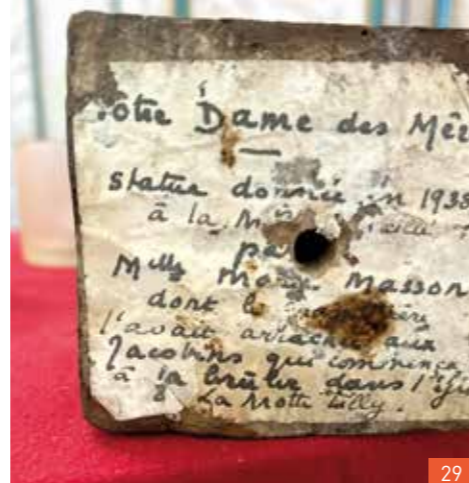 otre Dame des Mè
statue donnée en 1938
à la
pa
Mlle Marie Masson
dont le
l'avait arrachée aux
Jacobins qui commença
à la brûler dans l'
La Motte Tilly.
29